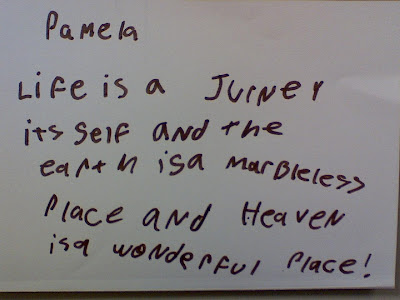 Pamela
Life is a Jurney
its self and the
earth isa marbleless
Place and Heaven
isa wonderful Place!